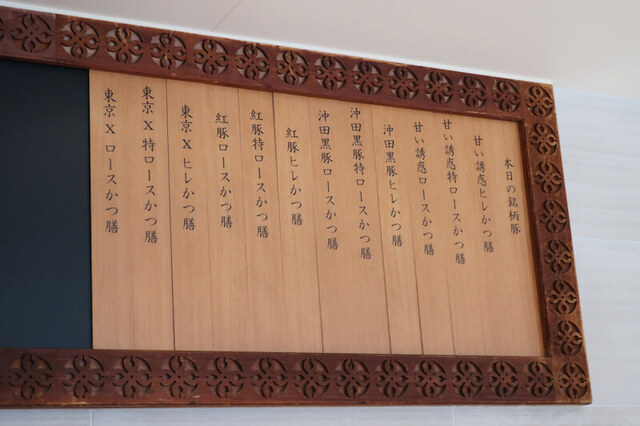 本日の銘柄豚
甘い誘惑ヒレかつ膳
甘い誘惑特ロースかつ膳
甘い誘惑ロースかつ膳
沖田黒豚ヒレかつ膳
沖田黒豚特ロースかつ膳
沖田黒豚ロースかつ膳
紅豚ヒレかつ膳
紅豚特ロースかつ膳
紅豚ロースかつ膳
東京Xヒレかつ膳
東京X特ロースかつ膳
東京Xロースかつ膳